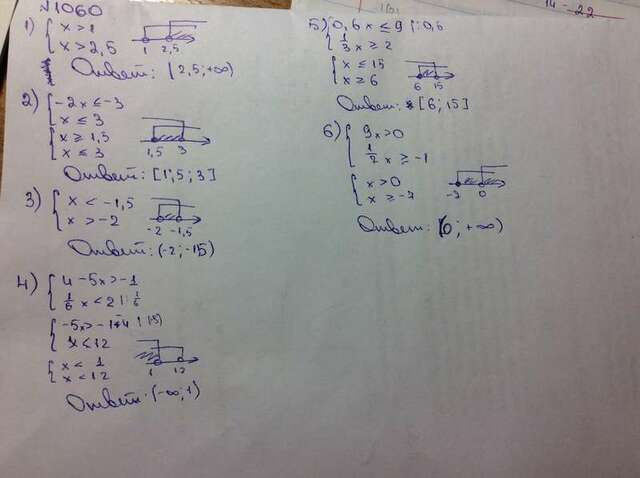 №1060
1) { x > 1
x > 2,5
1 2,5
Ответ: (2,5; +∞)
2) { -2x ≤ -3
x ≤ 3
{ x ≥ 1,5
x ≤ 3
1,5 3
Ответ: [1,5; 3]
3) { x < -1,5
x > -2
-2 -1,5
Ответ: (-2; -15)
4) { 4 - 5x > -1
1/6 x < 2 |: 1/6
{ -5x > -1 - 4 |: (-5)
x < 12
{ x < 1
x < 12
1 12
Ответ: (-∞; 1)
5) { 0,6x ≤ 9 |: 0,6
1/3 x ≥ 2
{ x ≤ 15
x ≥ 6
6 15
Ответ: [6; 15]
6) { 9x > 0
1/7 x ≥ -1
{ x > 0
x ≥ -7
-7 0
Ответ: (0; +∞)